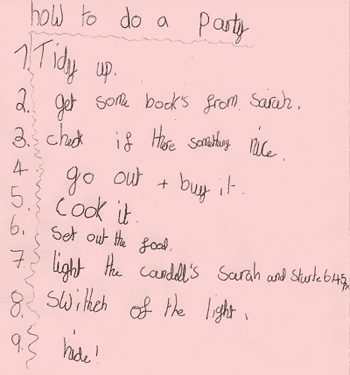 how to do a party
1. Tidy up.
2. get some book's from sarah.
3. check if there something nice.
4 go out + buy it.
5. cook it.
6. set out the food.
7. light the candell's sarah and
8. switheh of the light.
9. hide!